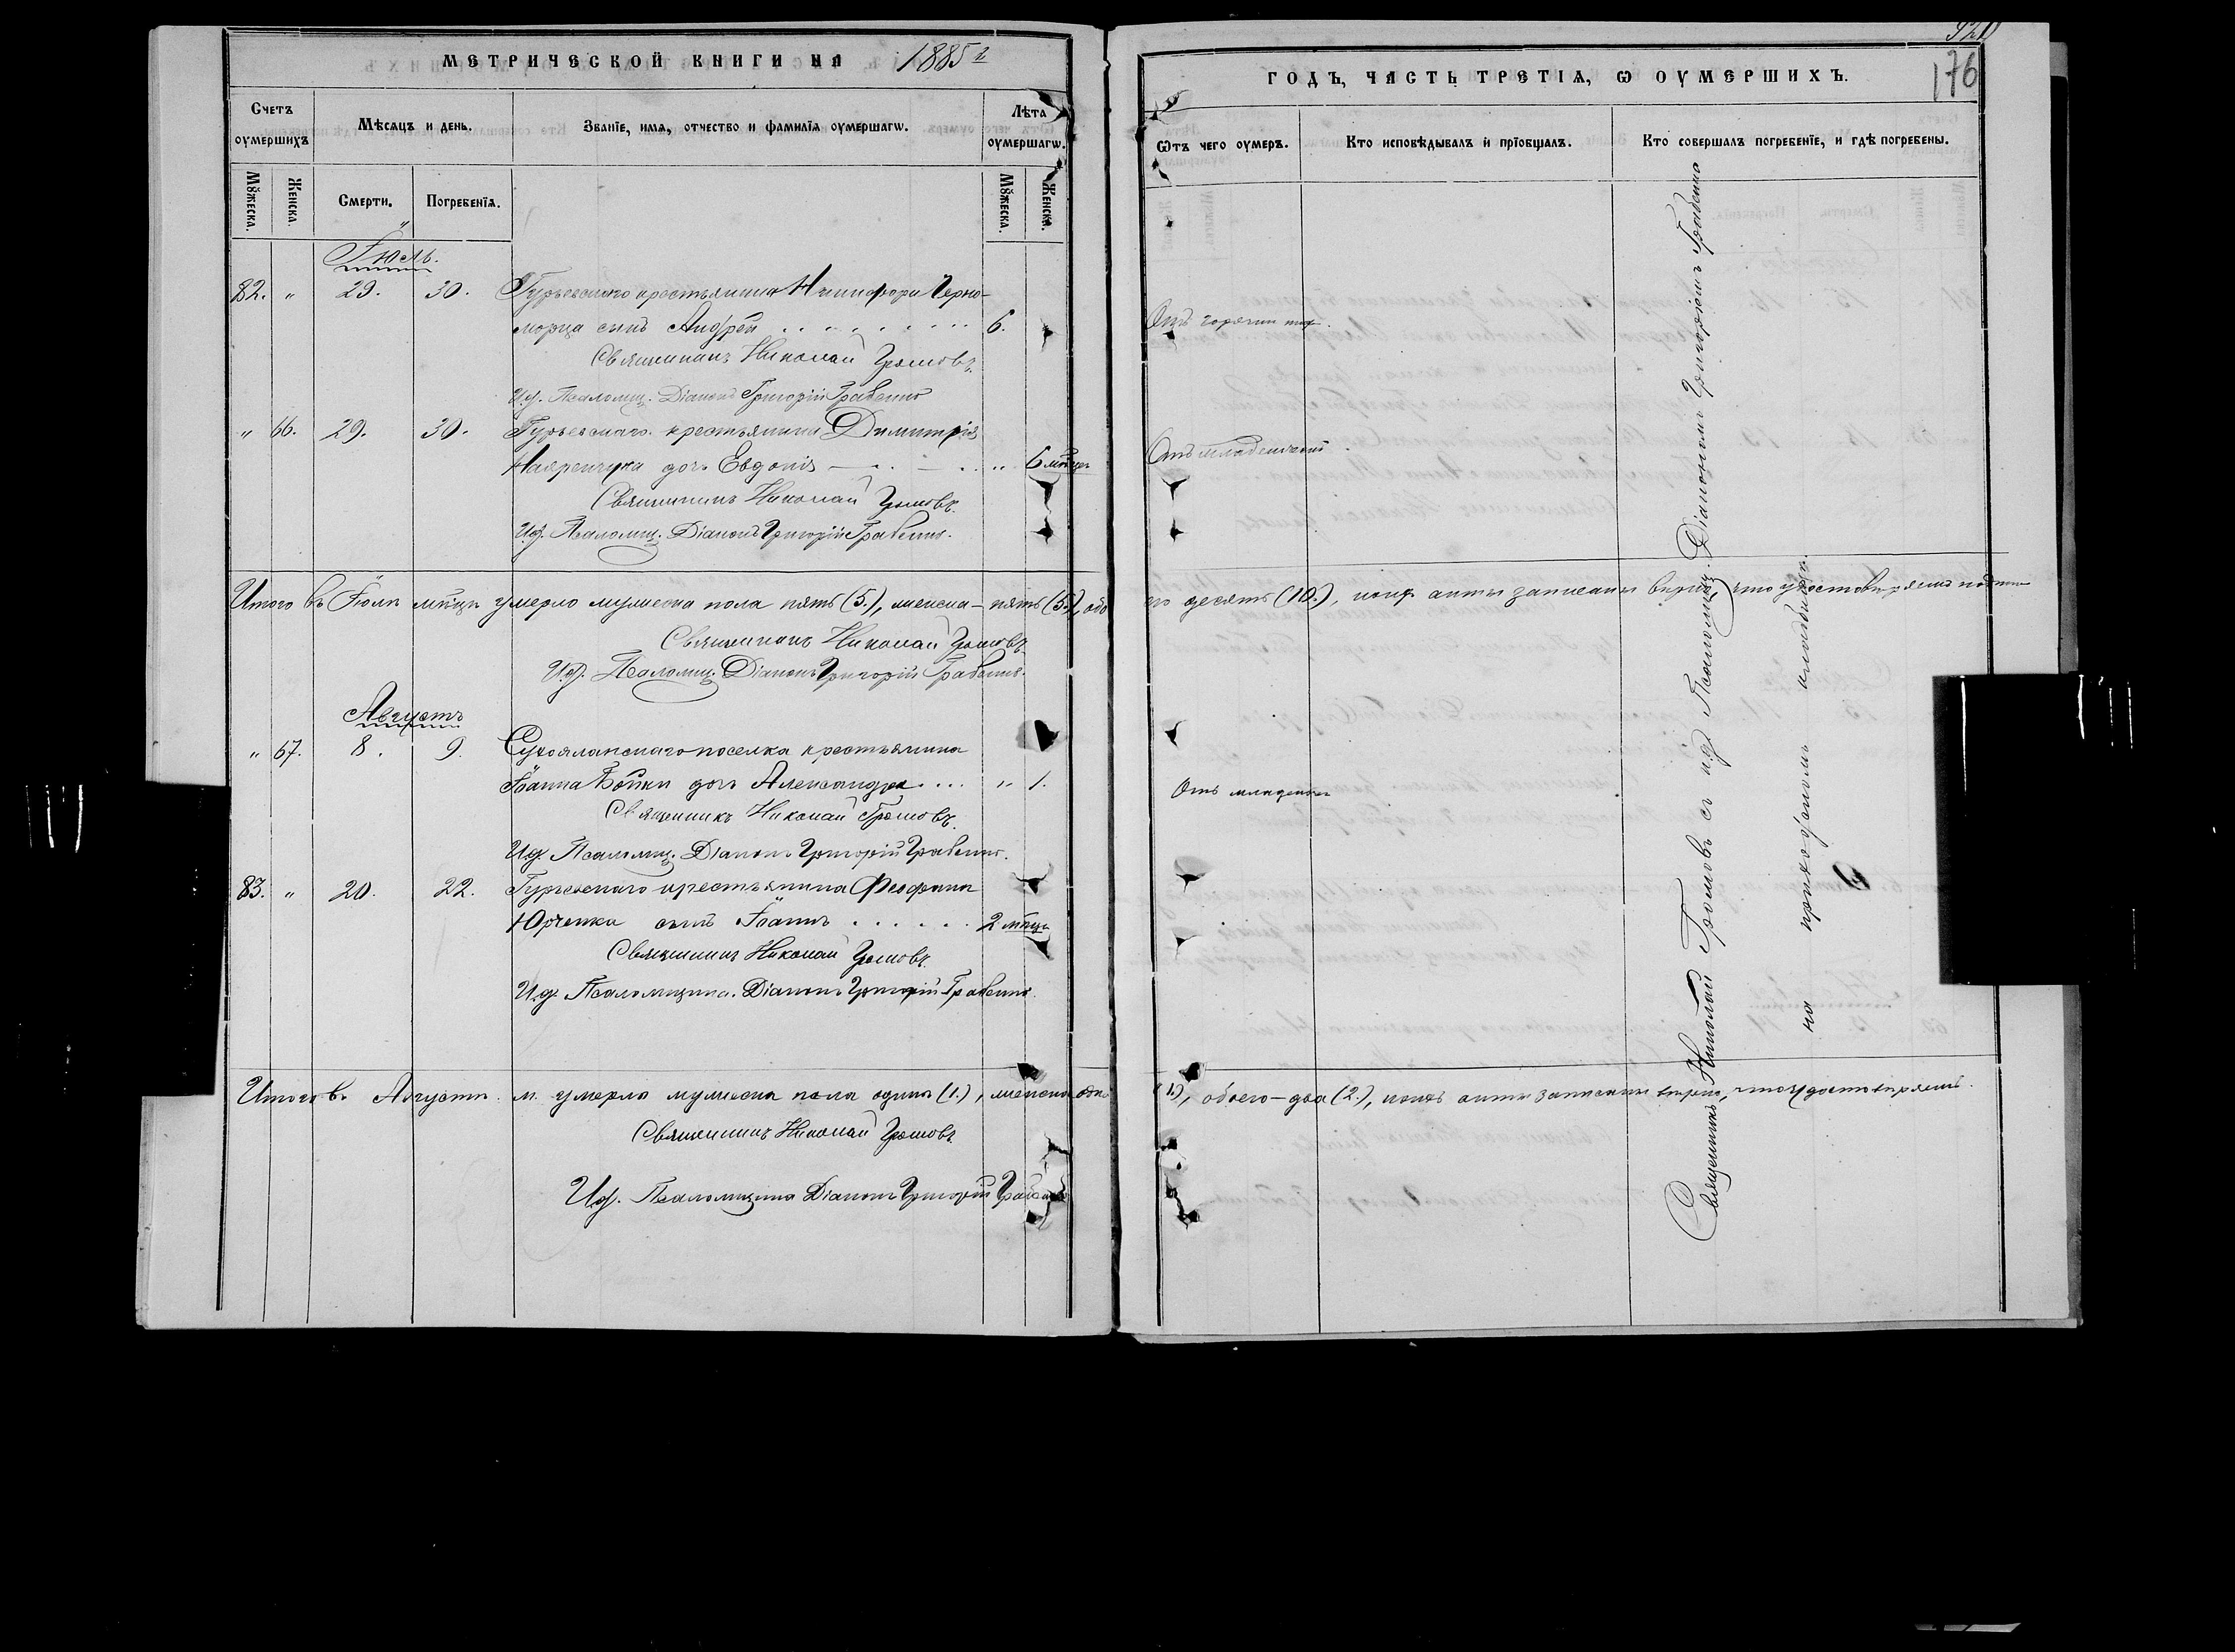 МЕТРИЧЕСКОЙ КНИГИ НА 1885 г.
Счетъ оумершихъ
Мѣсяцъ и день.
Званїе, имѧ, отчество и фамилїѧ оумершагѡ.
Лѣта оумершагѡ.
Мꙋжеска.
Женска.
Смерти.
Погребенїѧ.
Мꙋжеска.
Женска.
Іюль.
82. " 29. 30. Гурьевскаго крестьянина Никифора Черно-
морца сынъ Андрей 6.
Священникъ Николай Громовъ.
И.д. Псаломщ. Діаконъ Григорій Грабенко
" 66. 29. 30. Гурьевскаго крестьянина Димитрія
дочь Евдокія " 6 мѣсяц
Священникъ Николай Громовъ.
И.д. Псаломщ. Діаконъ Григорій Грабенко.
Итого въ Іюлѣ мѣсцѣ умерло мужеска пола пять (5.), женска – пять (5.), обо
Священникъ Николай Громовъ.
И.д. Псаломщ. Діаконъ Григорій Грабенко.
Августъ
" 67. 8. 9. Сухояланскаго поселка крестьянина
Іоанна Бойки дочь Александра " 1.
Священникъ Николай Громовъ.
И.д. Псаломщ. Діаконъ Григорій Грабенко.
83. " 20. 22. Гурьевскаго крестьянина Феофана
Юрченка сынъ Іоаннъ 2 мѣсц
Священникъ Николай Громовъ.
И.д. Псаломщика. Діаконъ Григорій Грабенко.
Итого въ Августѣ м. умерло мужеска пола одинъ (1.), женска одна
Священникъ Николай Громовъ.
И.д. Псаломщика Діаконъ Григорій Грабенко
176
ГОДЪ, ЧАСТЬ ТРЕТІѦ, Ѡ ОУМЕРШИХЪ.
Ѿтъ чего оумеръ.
Кто исповѣдывалъ и прїобщалъ.
Кто совершалъ погребенїе, и гдѣ погребены.
Отъ горячки
Отъ младенческой
го десять (10.), коихъ акты записаны вѣрно, что удостовѣряемъ
Отъ младенч
(1.), обоего – два (2.), коихъ акты записаны вѣрно, что удостовѣряемъ.
Священникъ Николай Громовъ съ и.д. Псаломщ. Діакономъ Григоріемъ Грабенко
на приходскомъ кладбищѣ.